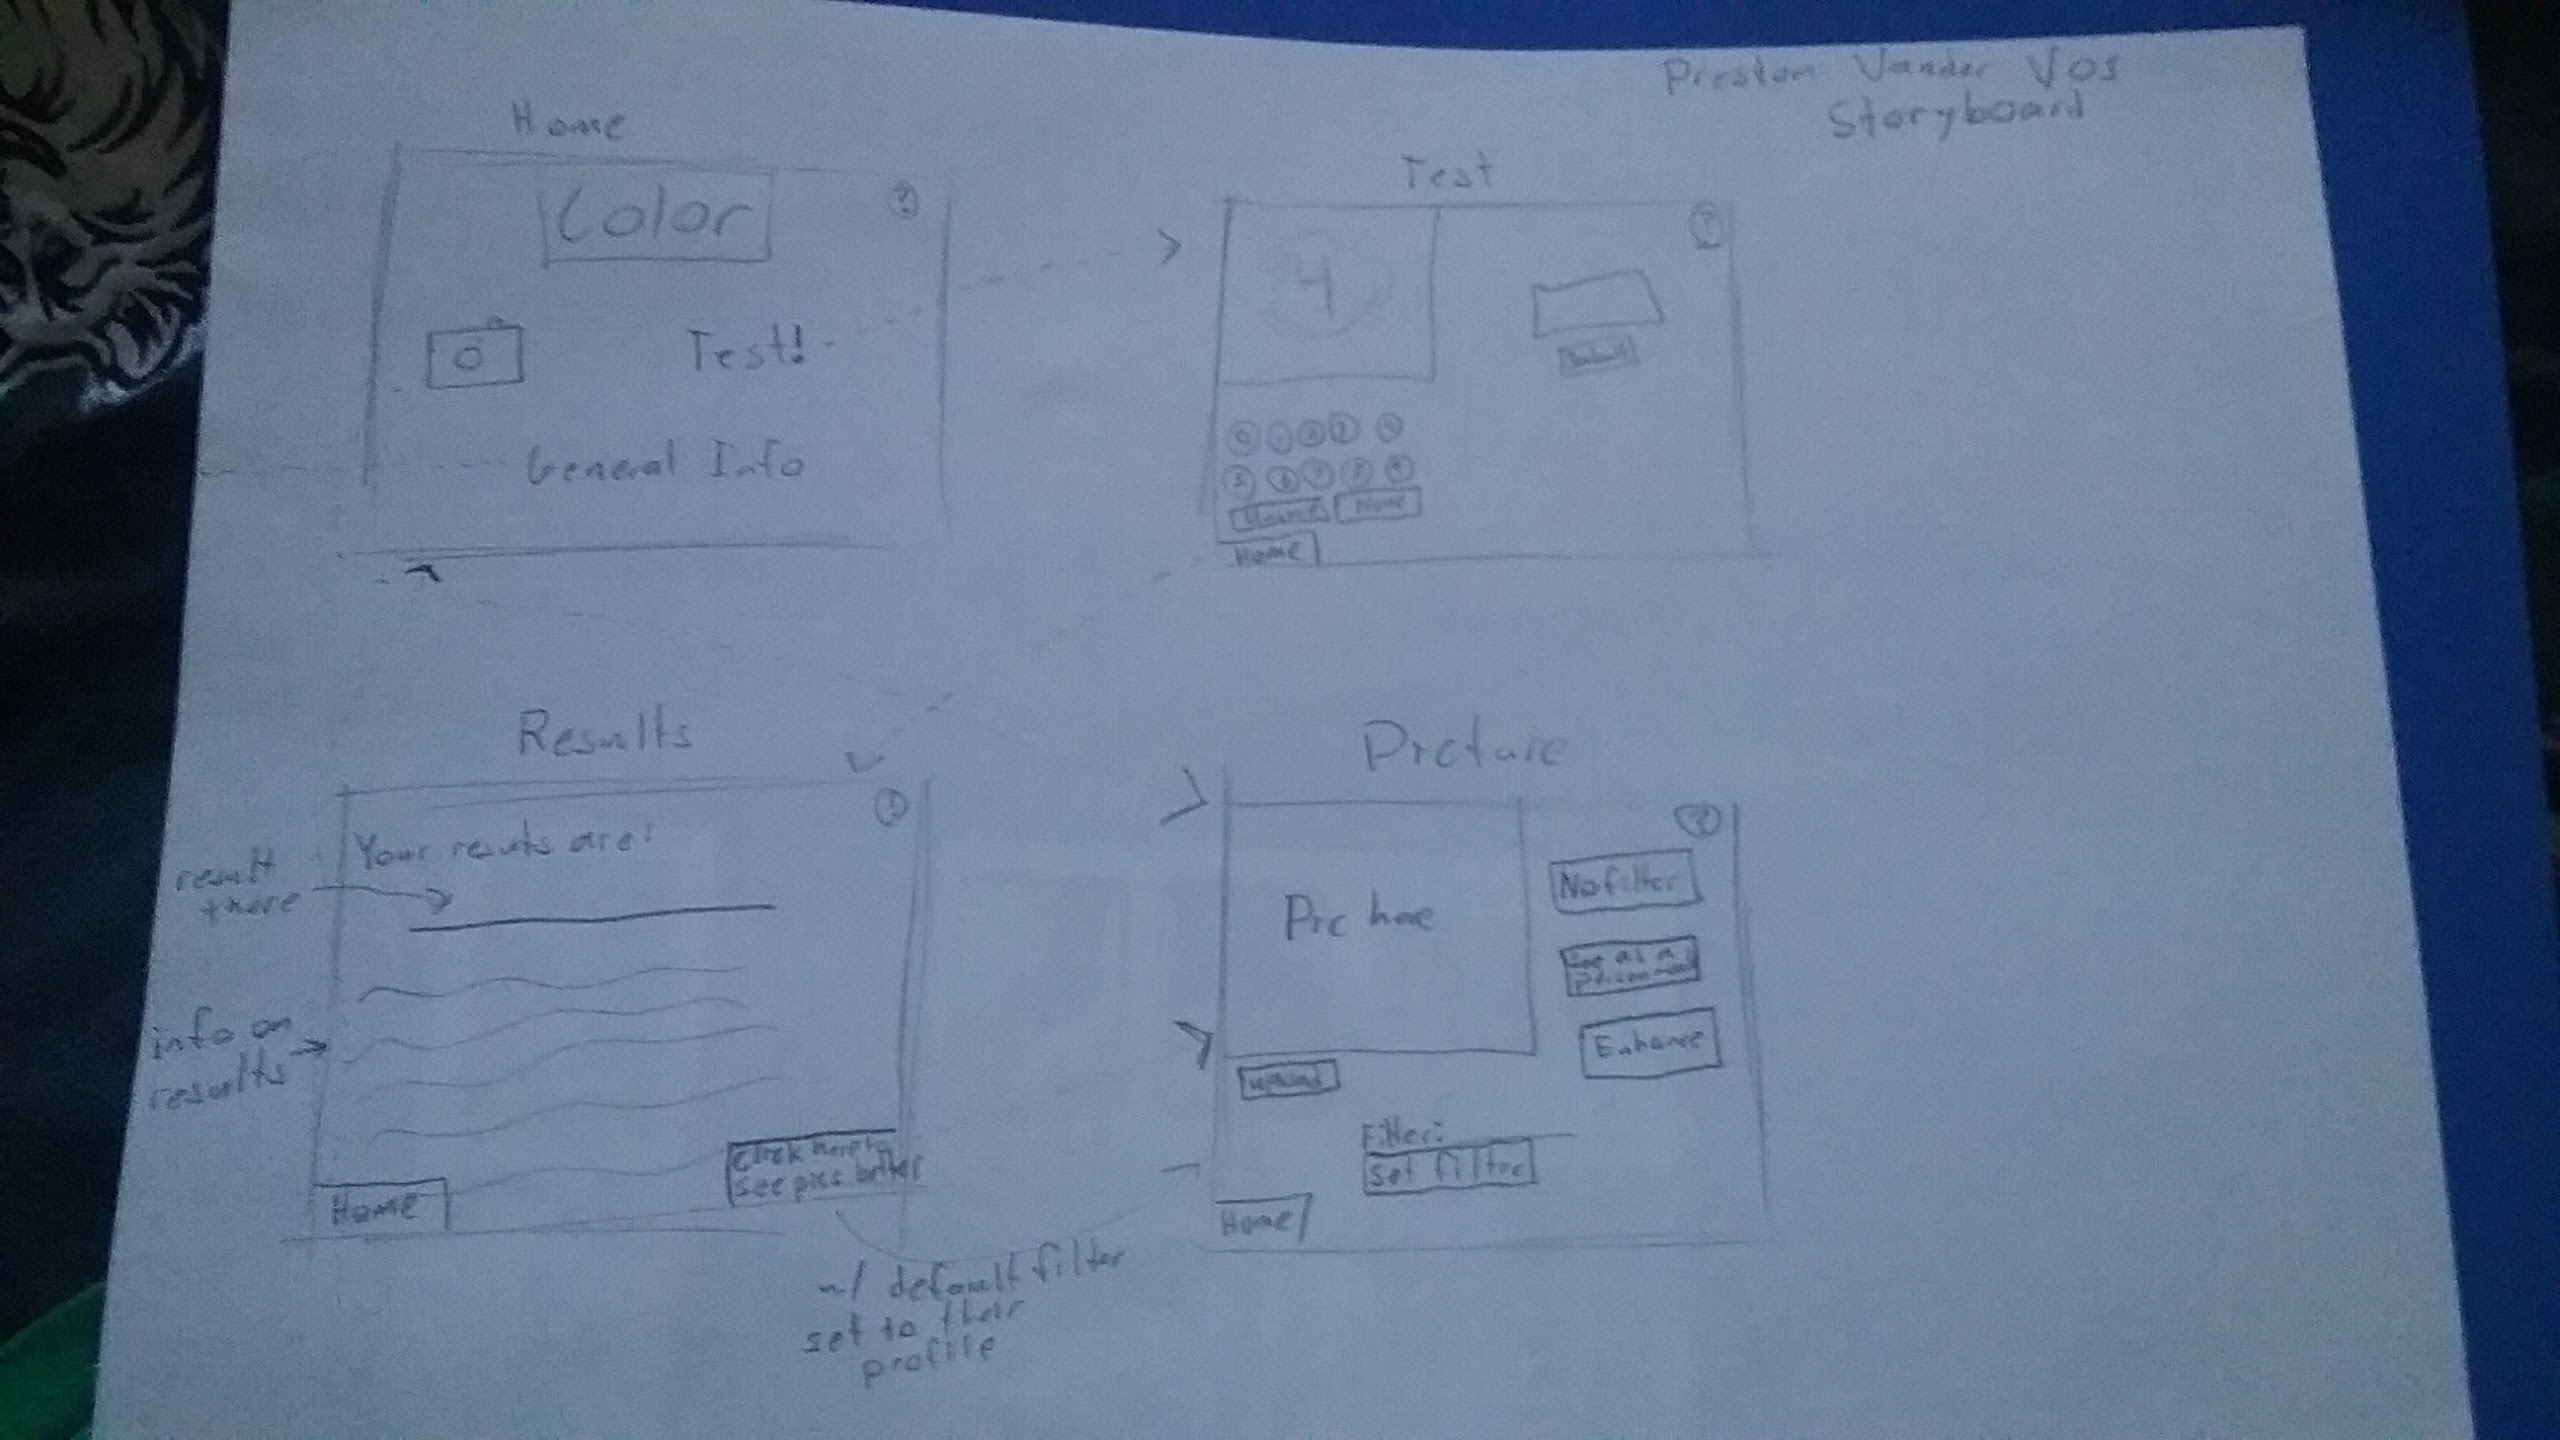 Preston Vander Vos
Storyboard
Home
Color
?
Test!
General Info
Test
?
4
0 1 2 3 4
5 6 7 8 9
None
Home
Results
?
Your resuts are:
result
there
info on
results
Home
Click here to
see pics better
w/ default filter
set to their
profile
Picture
?
Pic here
No filter
see as a
Enhance
upload
Filter:
set filter
Home